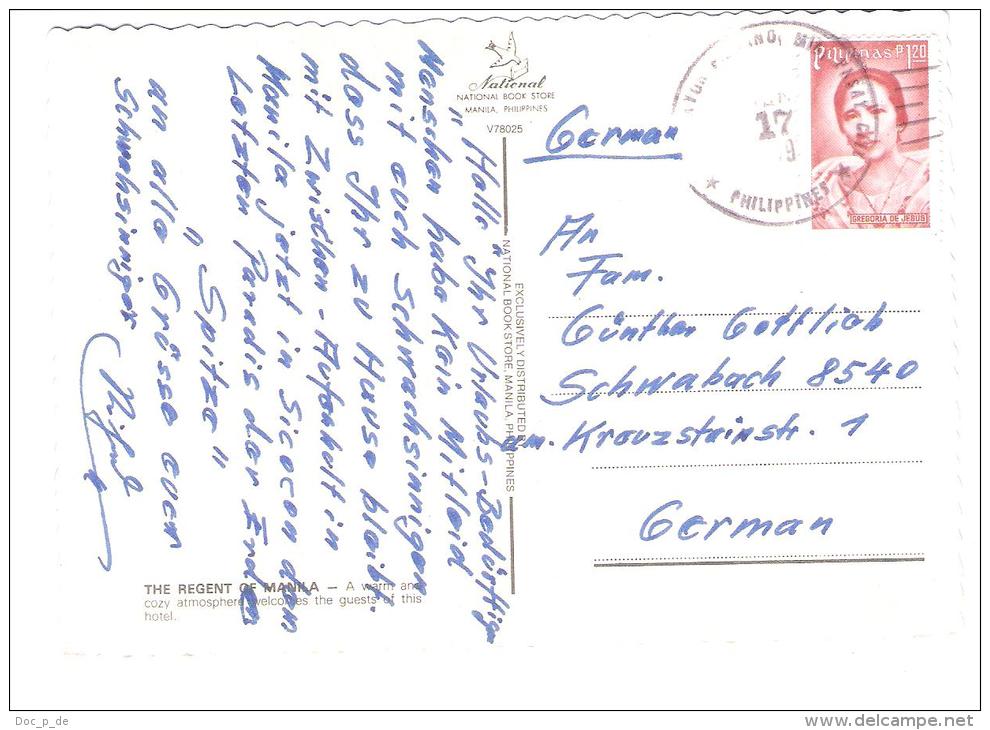 National
NATIONAL BOOK STORE
MANILA, PHILIPPINES
V78025
" Hallo " Ihr Urlaubs-Bedürftigen
Menschen habe Kein Mitleid
mit euch Schwachsinnigen
dass Ihr zu Hause bleibt.
mit Zwischen-Aufenhalt in
Manila jetzt in Sicocon dem
Letzten Paradis der Erde
" Spitze "
an alle Grüsse euer
Schwachsinniger
THE REGENT OF MANILA – A warm and
cozy atmosphere welcomes the guests of this
hotel.
EXCLUSIVELY DISTRIBUTED BY
NATIONAL BOOK STORE, MANILA, PHILIPPINES
German
Pilipinas P1.20
GREGORIA DE JESUS
17
PHILIPPINES
An
Fam.
Günther Gottlieb
Schwabach 8540
am. Kreuzsteinstr. 1
German
Doc_p_de
www.delcampe.net